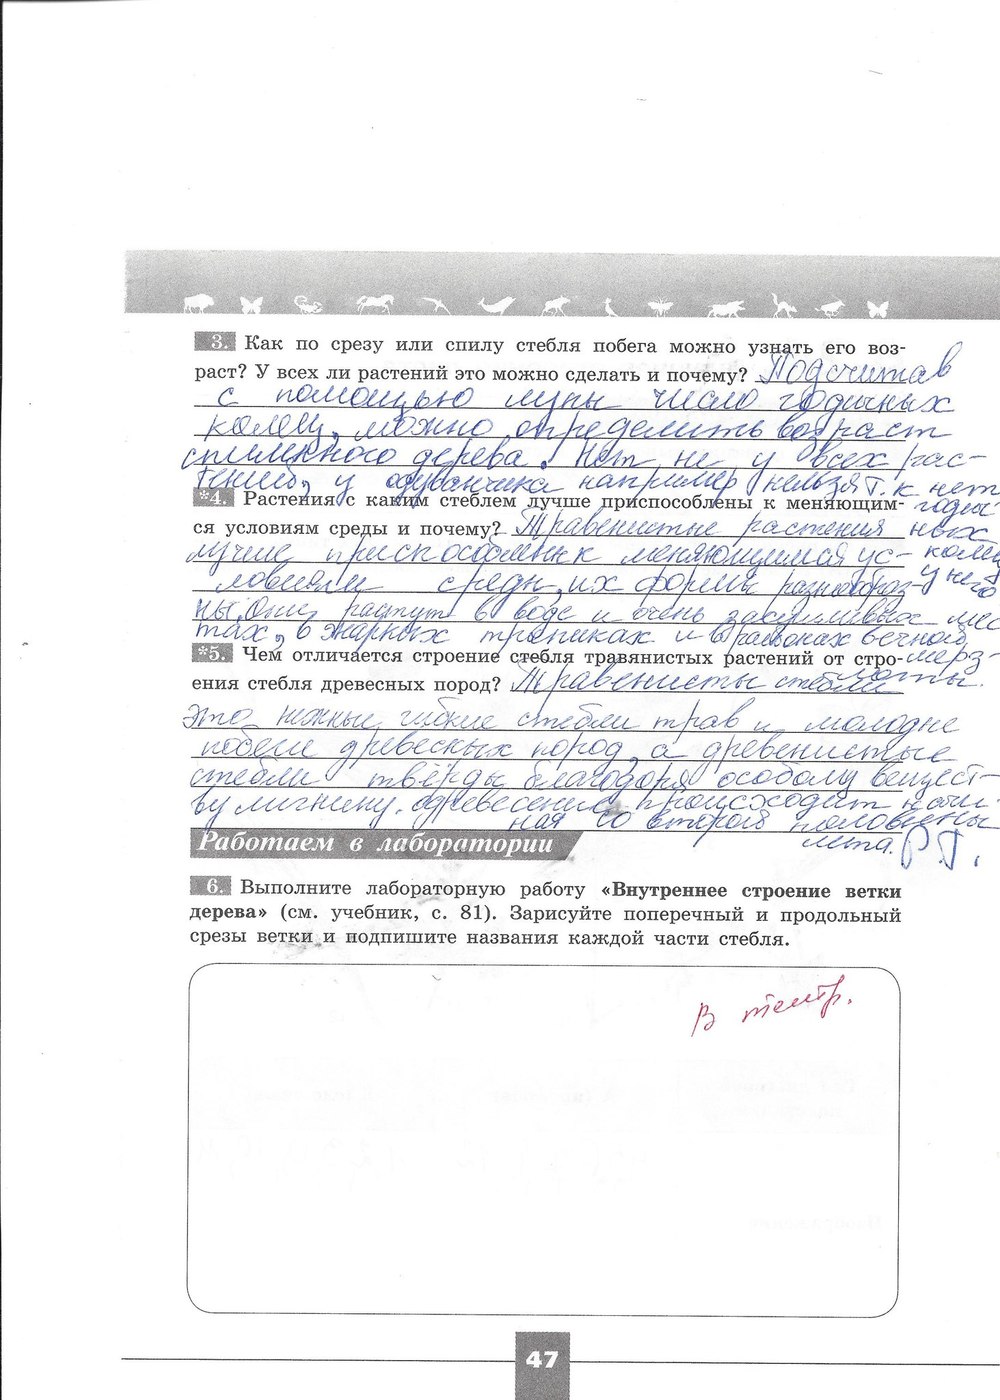 3. Как по срезу или спилу стебля побега можно узнать его воз-
раст? У всех ли растений это можно сделать и почему? Подсчитав
с помощью лупы число годичных
колец, можно определить возраст
спиленного дерева. Нет не у всех рас-
тений, у одуванчика например нельзя т.к нет
годич-
ных
колец
у него
*4. Растения с каким стеблем лучше приспособлены к меняющим-
ся условиям среды и почему? Травенистые растения
лучше приспособлены к меняющимся ус-
ловиям среды, их формы разнообраз-
ны. Они растут в воде и очень засушливых мес
тах, в жарких тропиках и в районах вечной
мерз-
лоты.
*5. Чем отличается строение стебля травянистых растений от стро-
ения стебля древесных пород? Травенисты стебли
это нежные гибкие стебли трав и молодые
побеги древесных пород, а древенистые
стебли твёрды благодаря особому вещест-
ву лигнину. одревесение происходит начи-
ная со второй половины
лета. Р.Т.
Работаем в лаборатории
6. Выполните лабораторную работу «Внутреннее строение ветки
дерева» (см. учебник, с. 81). Зарисуйте поперечный и продольный
срезы ветки и подпишите названия каждой части стебля.
В тетр.
47